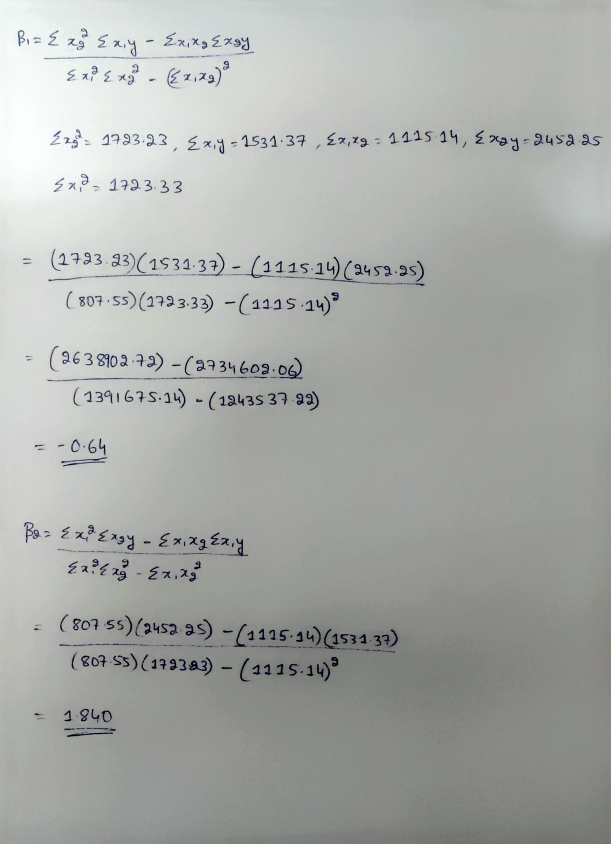 β₁ = Σx₂² Σx₁y - Σx₁x₂ Σx₂y
Σx₁² Σx₂² - (Σx₁x₂)²
Σx₂² = 1723.23, Σx₁y = 1531.37, Σx₁x₂ = 1115.14, Σx₂y = 2452.25
Σx₁² = 1723.33
= (1723.23)(1531.37) - (1115.14)(2452.25)
(807.55)(1723.33) - (1115.14)²
= (2638902.72) - (2734602.06)
(1391675.14) - (1243537.22)
= -0.64
β₂ = Σx₁² Σx₂y - Σx₁x₂ Σx₁y
Σx₁² Σx₂² - Σx₁x₂²
= (807.55)(2452.25) - (1115.14)(1531.37)
(807.55)(1723.23) - (1115.14)²
= 1.840